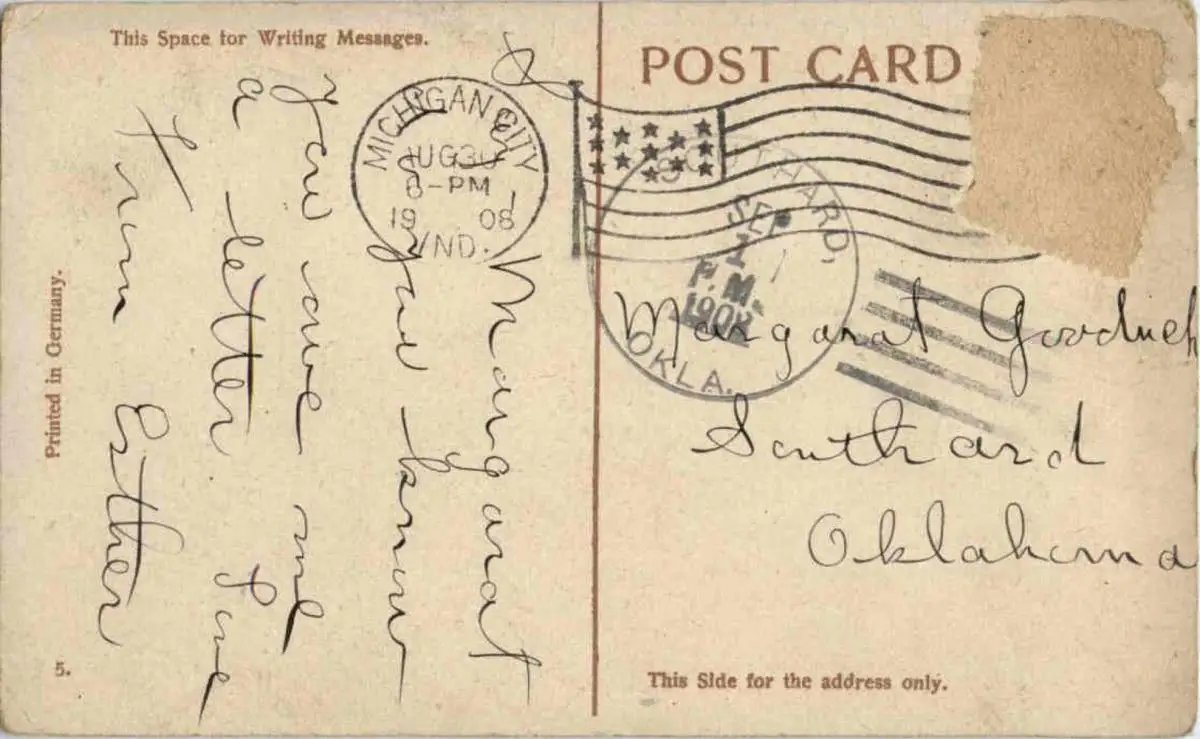 This Space for Writing Messages.
Dear Margarat
you know
You owe me
a letter Love
from Esther
Printed in Germany.
5.
MICHIGAN CITY
AUG 30
6-PM
1908
IND.
POST CARD
SOUTHARD,
SEP
1
P.M.
1908
OKLA.
Margarat Goodrich
Southard
Oklahoma
This Side for the address only.